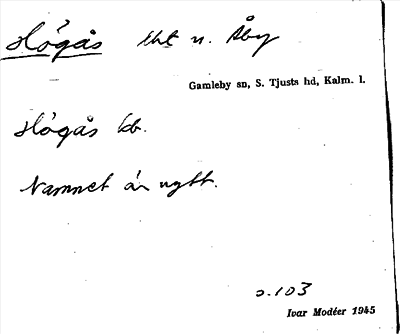 Högås lht u. Åby
Gamleby sn, S. Tjusts hd, Kalm. l.
Högås kb.
Namnet är nytt.
s. 103
Ivar Modéer 1945